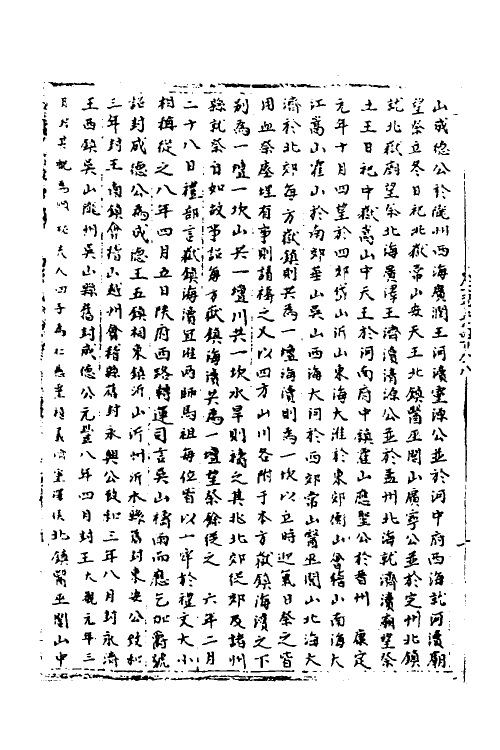 山成德公於隴州西海廣潤王河瀆靈源公並於河中府西海就河瀆廟
望祭立冬日祀北嶽常山安天王北鎮醫巫閭山廣寧公並於定州北鎮
就北嶽廟望祭北海廣澤王濟瀆清源公並於孟州北海就濟瀆廟望祭
土王日祀中嶽嵩山中天王於河南府中鎮霍山應聖公於晉州　康定
元年十月四望於四郊岱山沂山東海大淮於東郊衡山會稽山南海大
江嵩山霍山於南郊華山吳山西海大河於西郊常山醫巫閭山北海大
濟於北郊每方嶽鎮則共為一壇海瀆則為一坎以五時迎氣日祭之皆
用血祭瘞埋有事則請禱之又以四方山川各附于本方嶽鎮海瀆之下
別為一壇一坎山共一壇川共一坎水旱則禱之其北北郊從郊及諸州
縣就祭自如故事詔每方嶽鎮海瀆共為一壇望祭餘從之　六年二月
二十八日禮部言嶽鎮海瀆逗雨師馬祖每位皆以一宰於禮文大小
相稱從之八年四月五日陝府西路轉運司言吳山禱雨而應乞加爵號
詔封成德公為成德王五鎮相東鎮沂山沂州沂水縣舊封東安公政和
三年封王南鎮會稽山越州會稽縣舊封永興公政和三年八月封永濟
王西鎮吳山隴州吳山縣舊封成德公元豐八年四月封王大觀元年三
月
北鎮醫巫閭山中